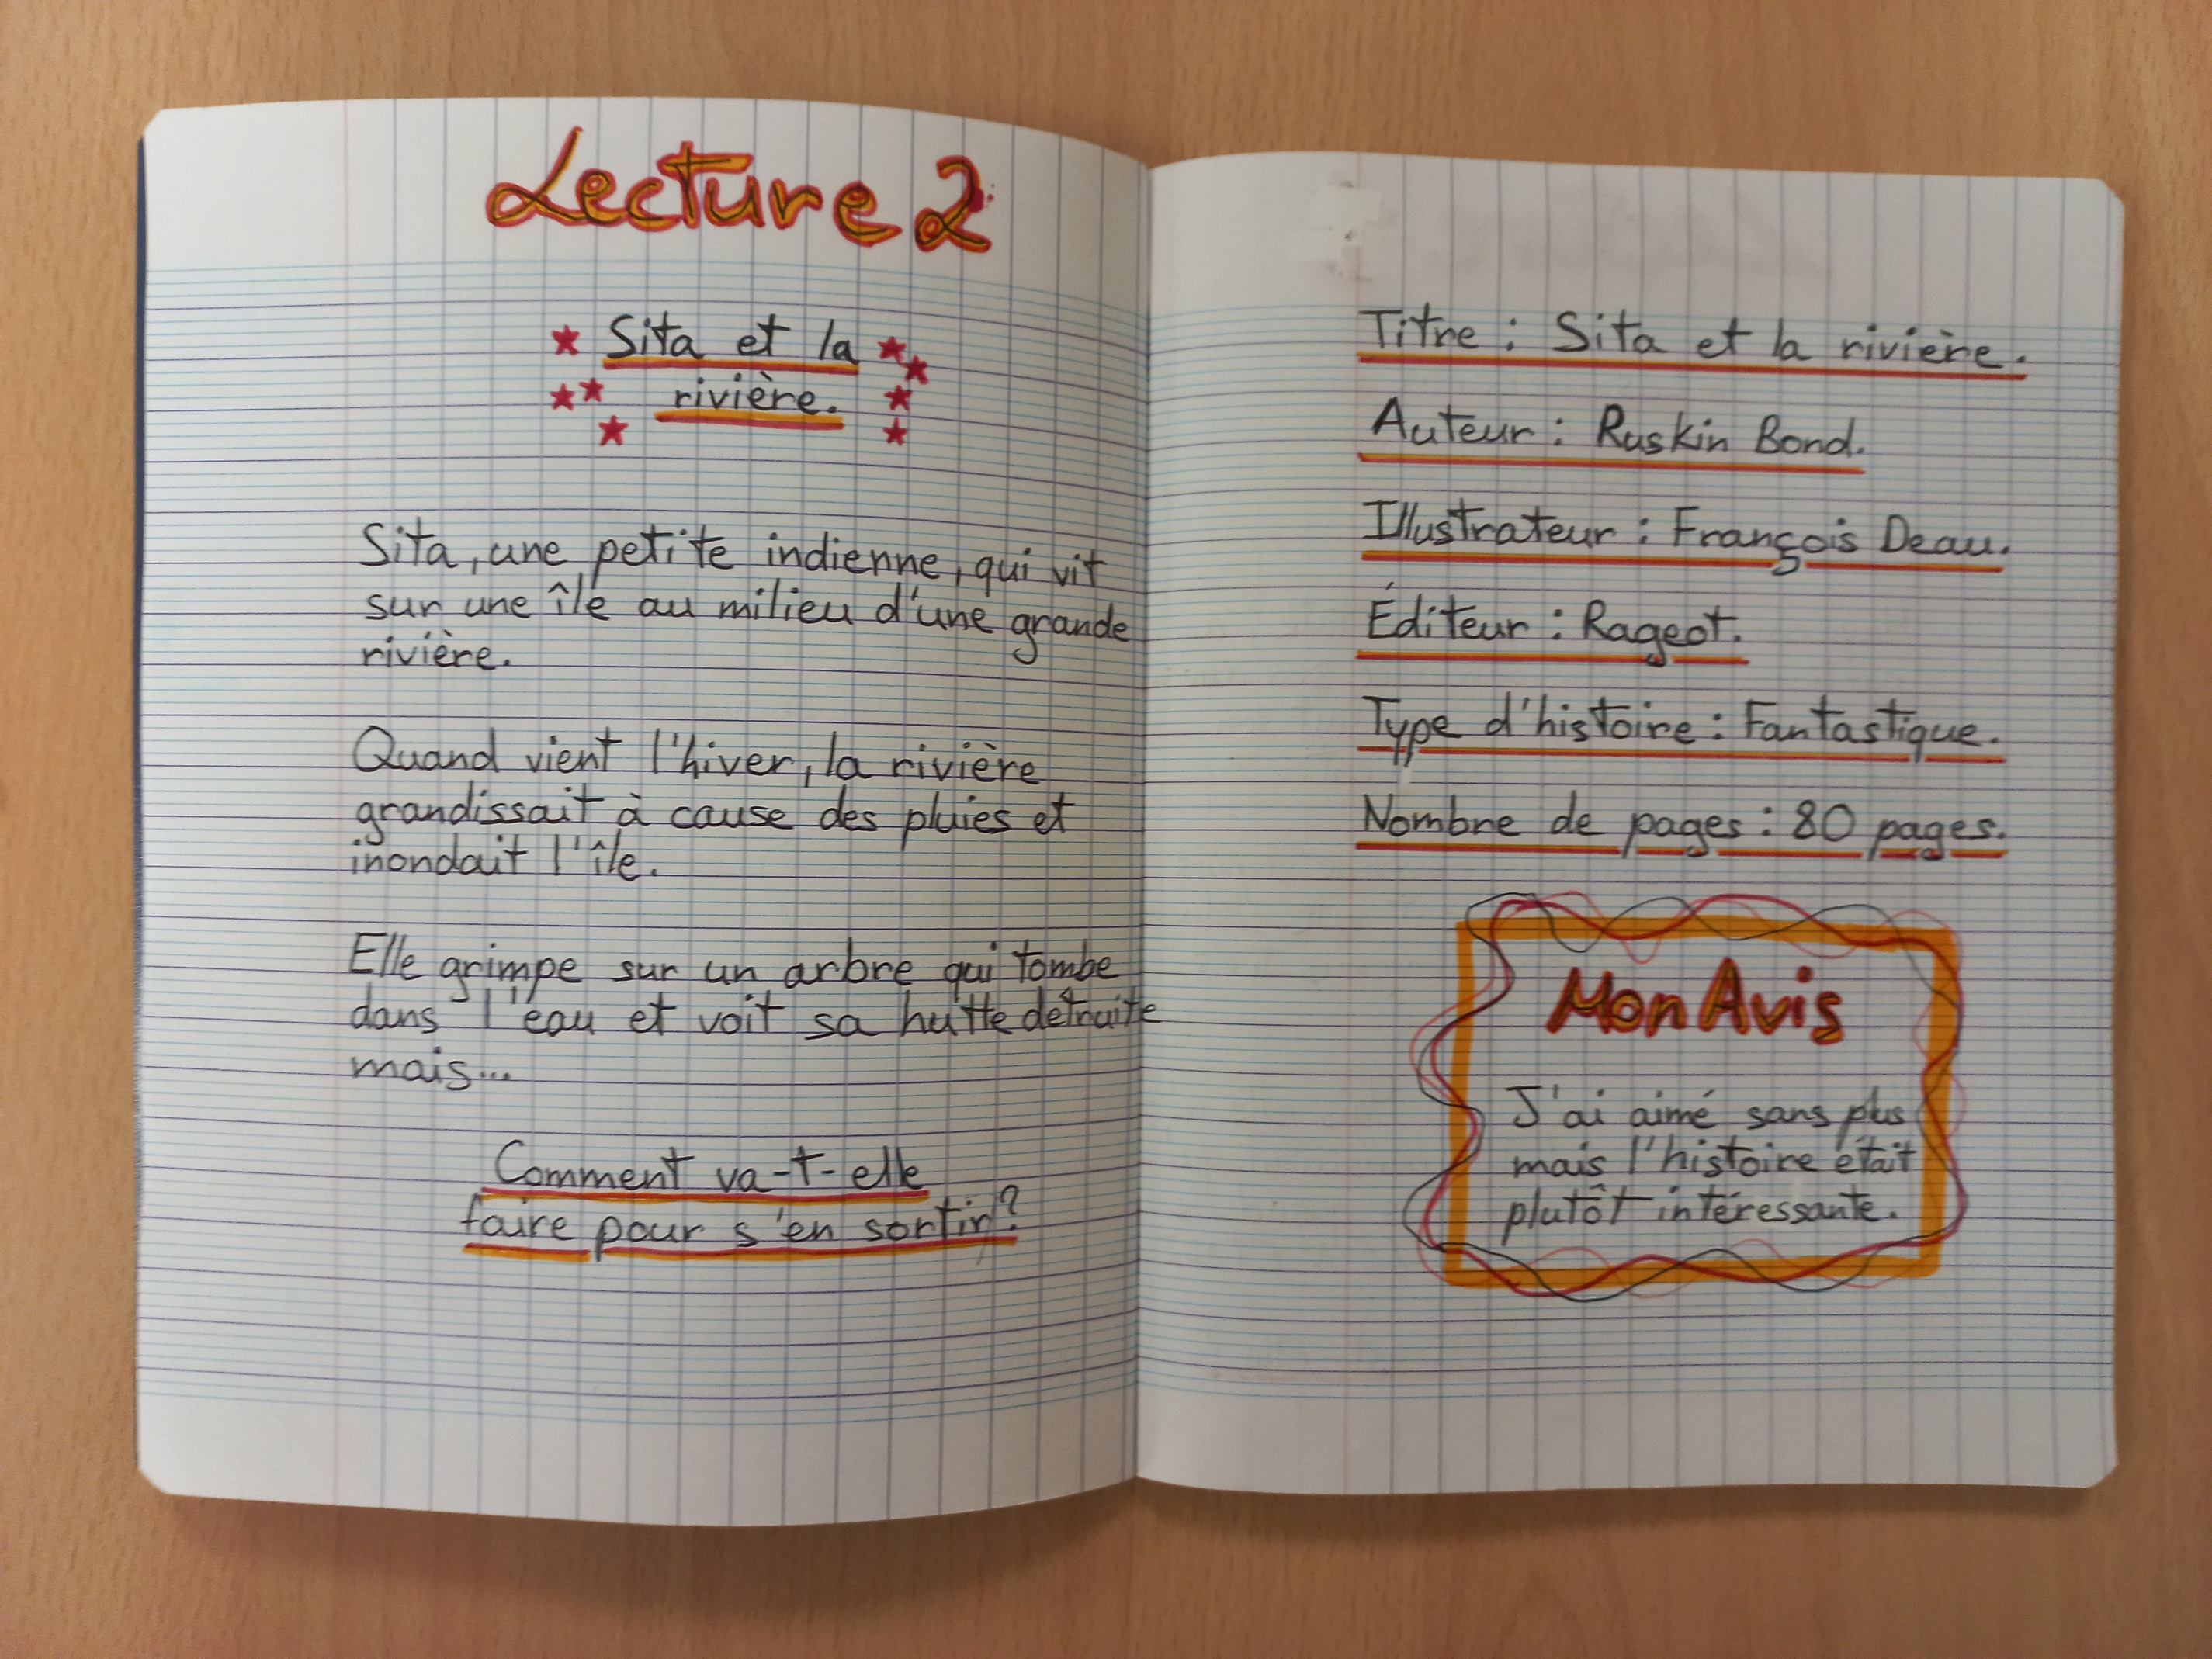 Lecture 2
Sita et la
rivière.
Sita, une petite indienne, qui vit
sur une île au milieu d'une grande
rivière.
Quand vient l'hiver, la rivière
grandissait à cause des pluies et
inondait l'île.
Elle grimpe sur un arbre qui tombe
dans l'eau et voit sa hutte détruite
mais...
Comment va-t-elle
faire pour s'en sortir?
Titre : Sita et la rivière.
Auteur : Ruskin Bond.
Illustrateur : François Deau.
Éditeur : Rageot.
Type d'histoire : Fantastique.
Nombre de pages : 80 pages.
Mon Avis
J'ai aimé sans plus
mais l'histoire était
plutôt intéressante.